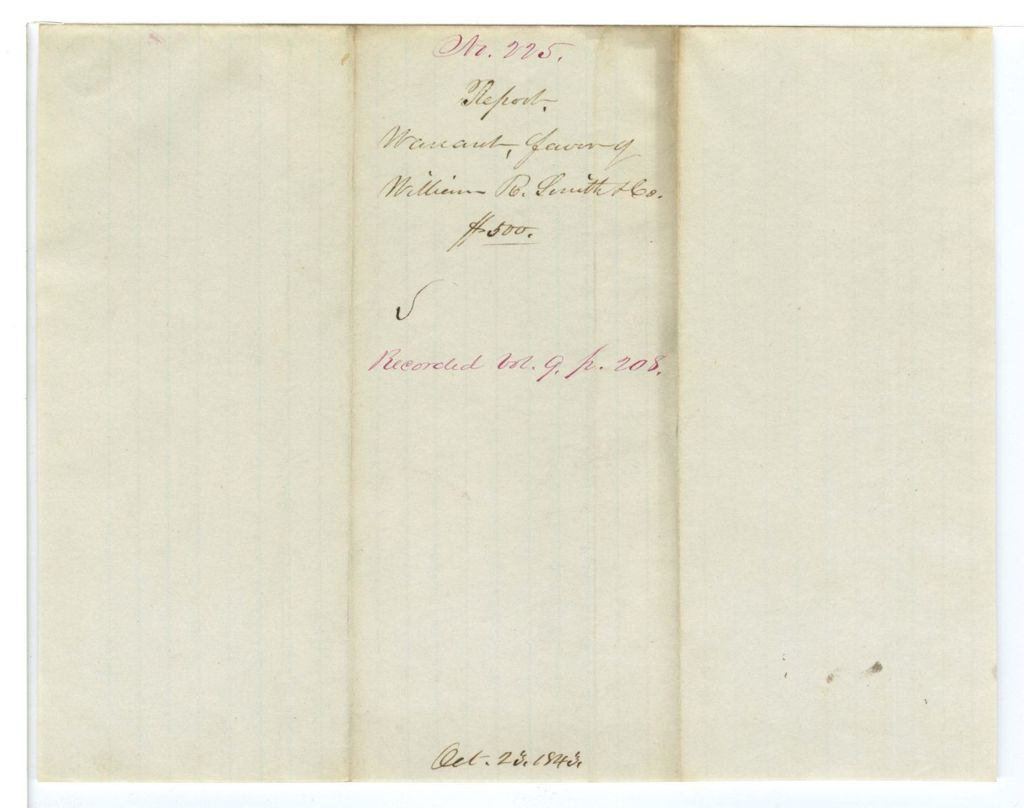 No. 225.
Report.
Warrant, favor of
William R. Smith & Co.
$500.
Recorded Vol. 9. p. 208.
Oct. 23. 1843.